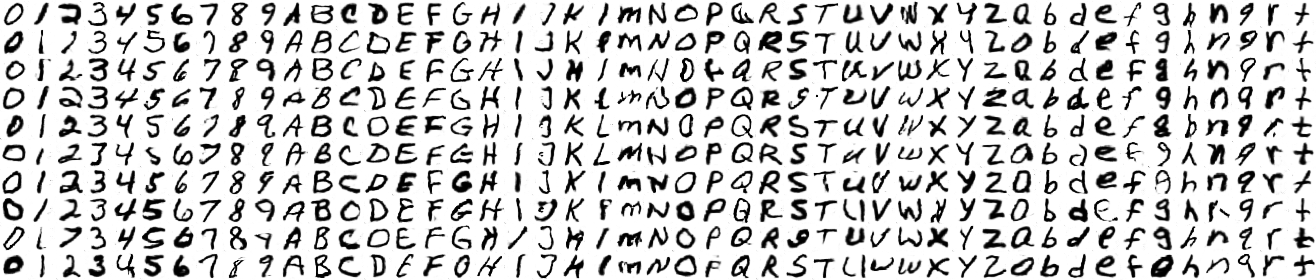 0 1 2 3 4 5 6 7 8 9 A B C D E F G H I J K l m N O P Q R S T U V W X Y Z a b d e f g h n q r t
0 1 2 3 4 5 6 7 8 9 A B C D E F G H I J K l m N O P Q R S T U V W X Y Z a b d e f g h n q r t
0 1 2 3 4 5 6 7 8 9 A B C D E F G H I J K l m N O P Q R S T U V W X Y Z a b d e f g h n q r t
0 1 2 3 4 5 6 7 8 9 A B C D E F G H I J K l m N O P Q R S T U V W X Y Z a b d e f g h n q r t
0 1 2 3 4 5 6 7 8 9 A B C D E F G H I J K L m N O P Q R S T U V W X Y Z a b d e f g h n q r t
0 1 2 3 4 5 6 7 8 9 A B C D E F G H I J K L m N O P Q R S T U V W X Y Z a b d e f g h n q r t
0 1 2 3 4 5 6 7 8 9 A B C D E F G H I J K l m N O P Q R S T U V W X Y Z a b d e f g h n q r t
0 1 2 3 4 5 6 7 8 9 A B C D E F G H I J K l m N O P Q R S T U V W X Y Z a b d e f g h n q r t
0 1 2 3 4 5 6 7 8 9 A B C D E F G H I J K l m N O P Q R S T U V W X Y Z a b d e f g h n q r t
0 1 2 3 4 5 6 7 8 9 A B C D E F G H I J K l m N O P Q R S T U V W X Y Z a b d e f g h n q r t